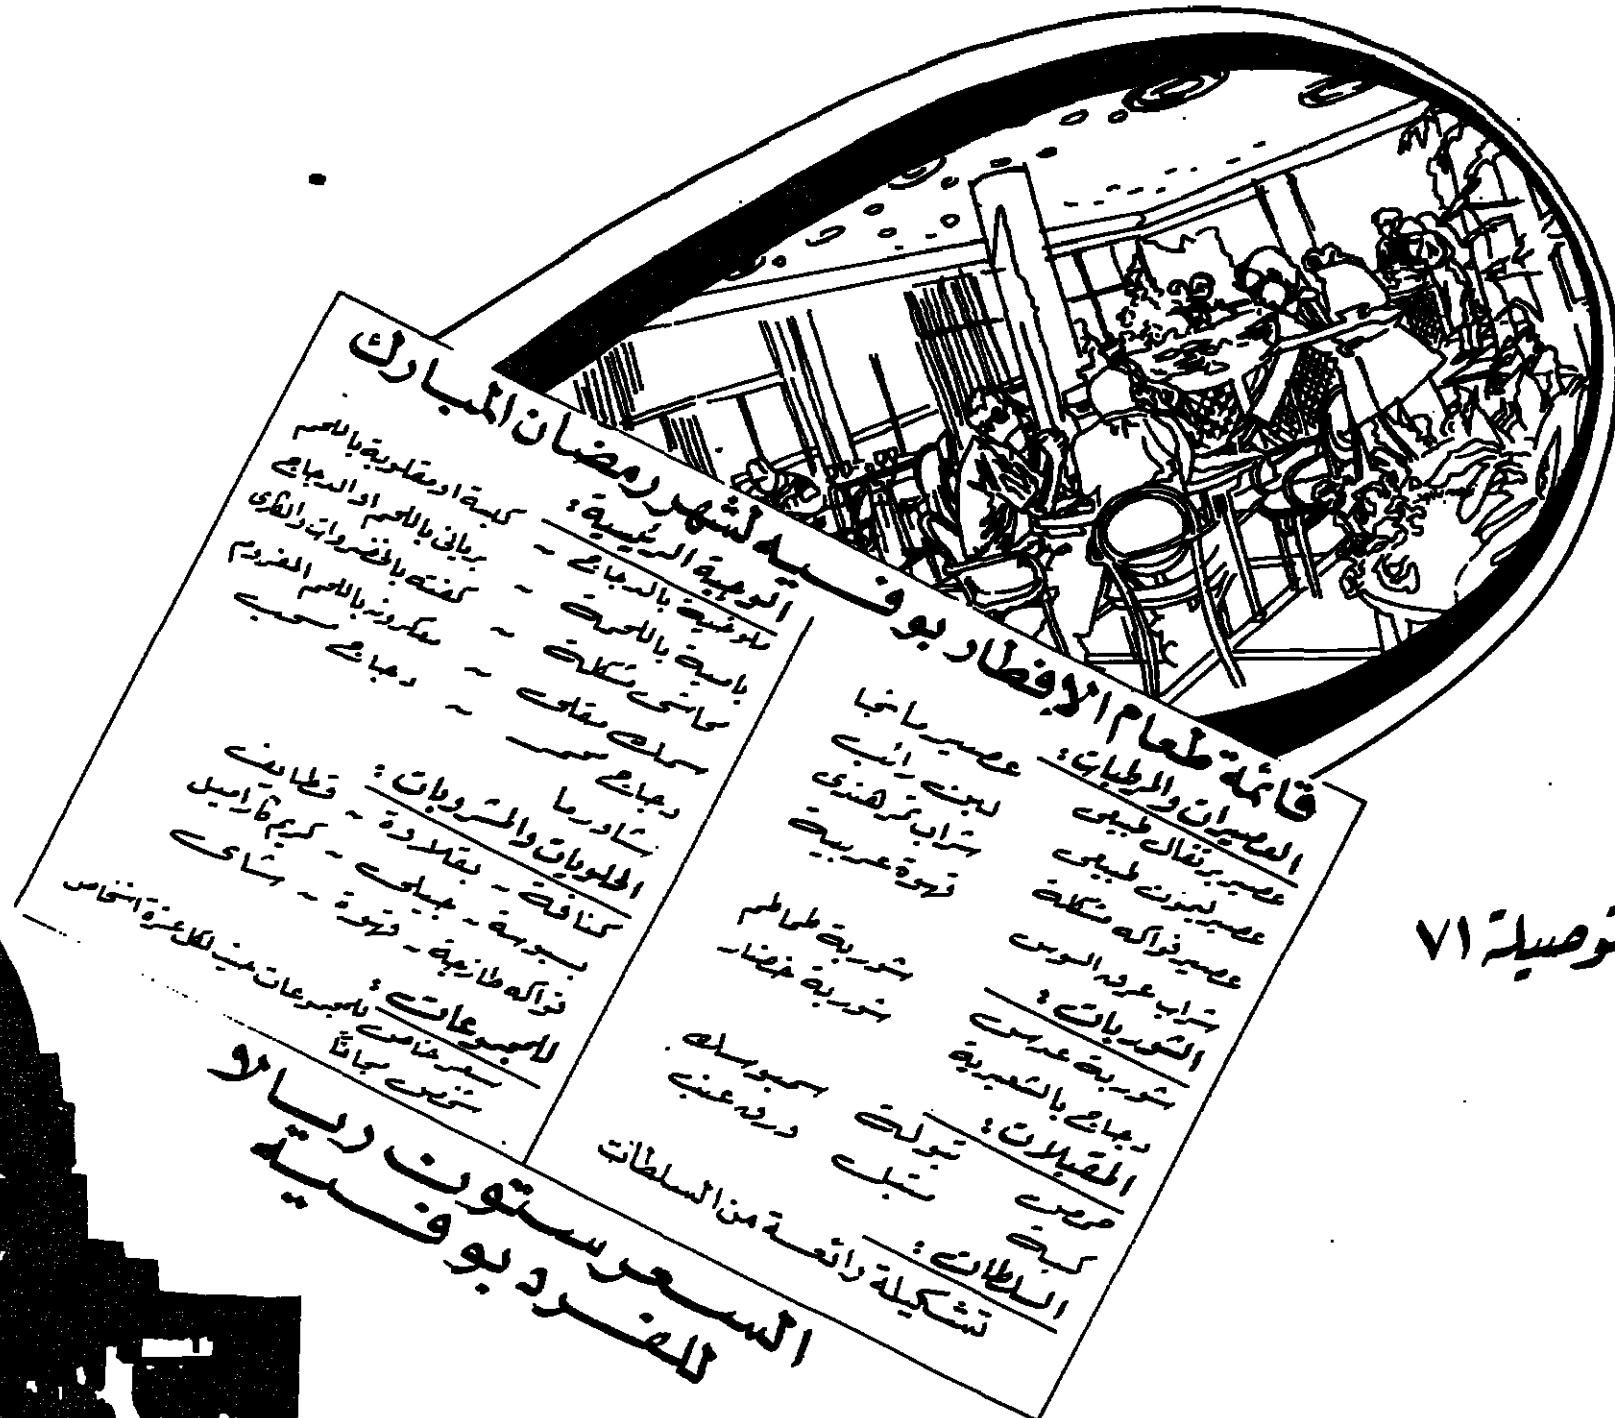 قائمة طعام الإفطار بوفيه لشهر رمضان المبارك
العصيرات والمرطبات:
عصير برتقال طبيعي عصير مانجا
عصير ليمون طبيعي لبن رائب
عصير فواكه مشكلة شراب تمر هندي
شراب عرق السوس قهوة عربية
الشوربات:
شوربة عدس شوربة طماطم
دجاج بالشعيرية شوربة خضار
المقبلات:
حمص تبولة سمبوسك
كبة متبل ورق عنب
السلطات:
تشكيلة رائعة من السلطات
الوجبة الرئيسية:
ملوخية بالدجاج ~ كبسة او مقلوبة باللحم
بامية باللحمة ~ برياني باللحم او الدجاج
محاشي مشكلة ~ كفته بالخضروات والكري
سمك مقلي ~ معكرونه باللحم المفروم
دجاج محمر ~ دجاج مسحب
شاورما
الحلويات والمشروبات:
كنافة ~ بقلاوة ~ قطايف
بسبوسة ~ جيلي ~ كريم كاراميل
فواكه طازجة ~ قهوة ~ شاي
للمجموعات:
سعر خاص للمجموعات حيث لكل عشرة اشخاص
شخص مجاناً
السعر ستون ريالا
للفرد بوفيه
توصيلة ٧١